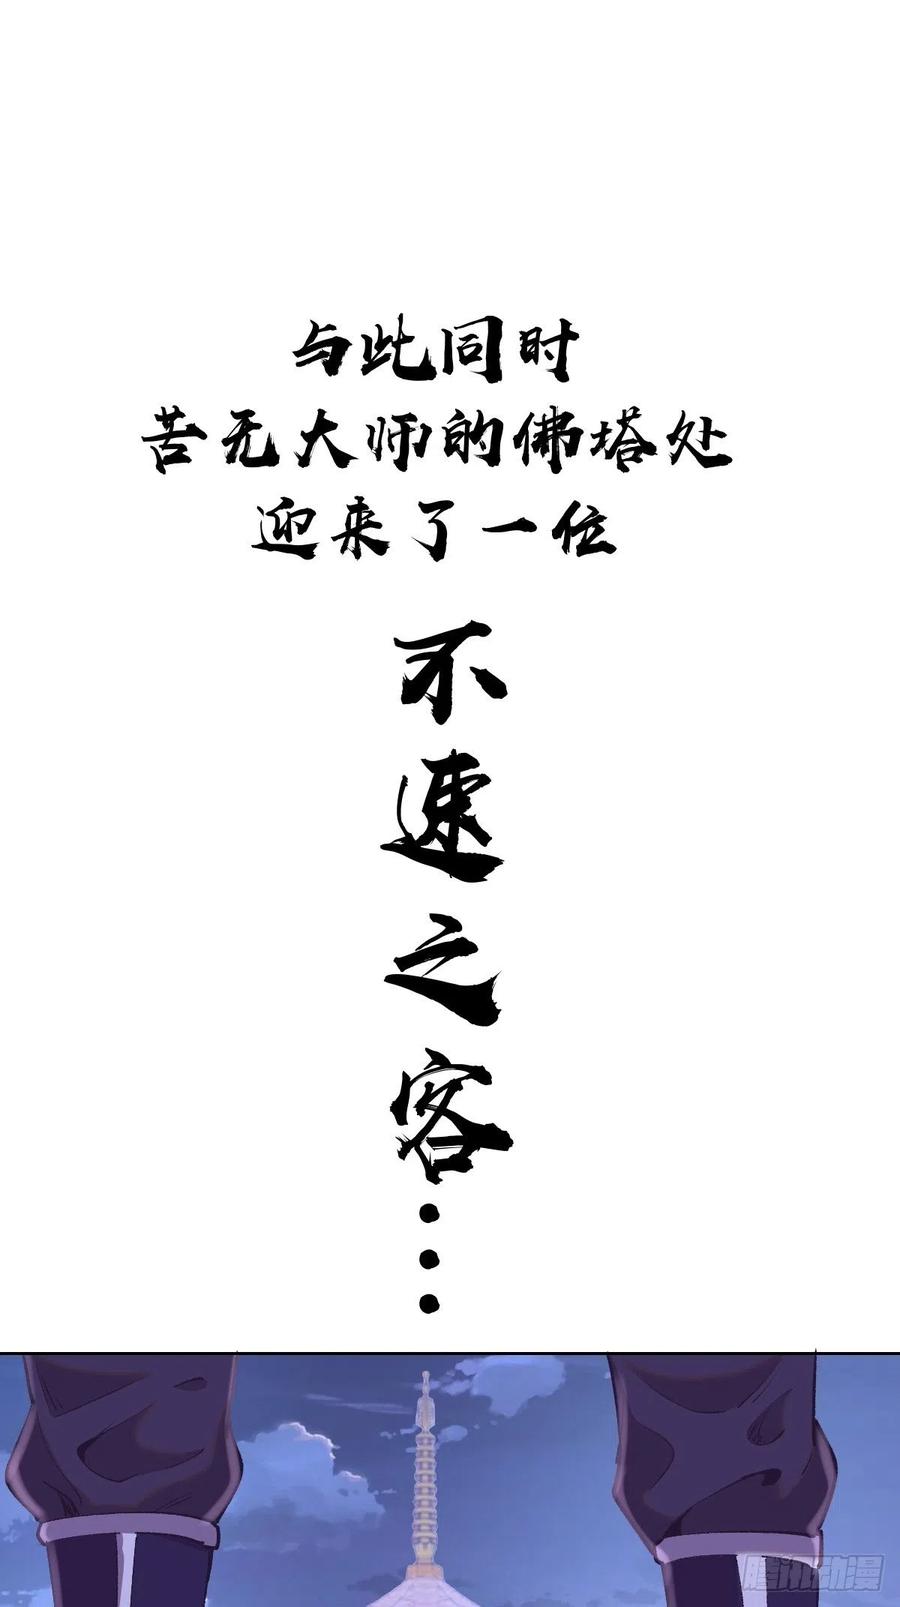 与此同时
苦无大师的佛塔处
迎来了一位
不速之客...
腾讯动漫